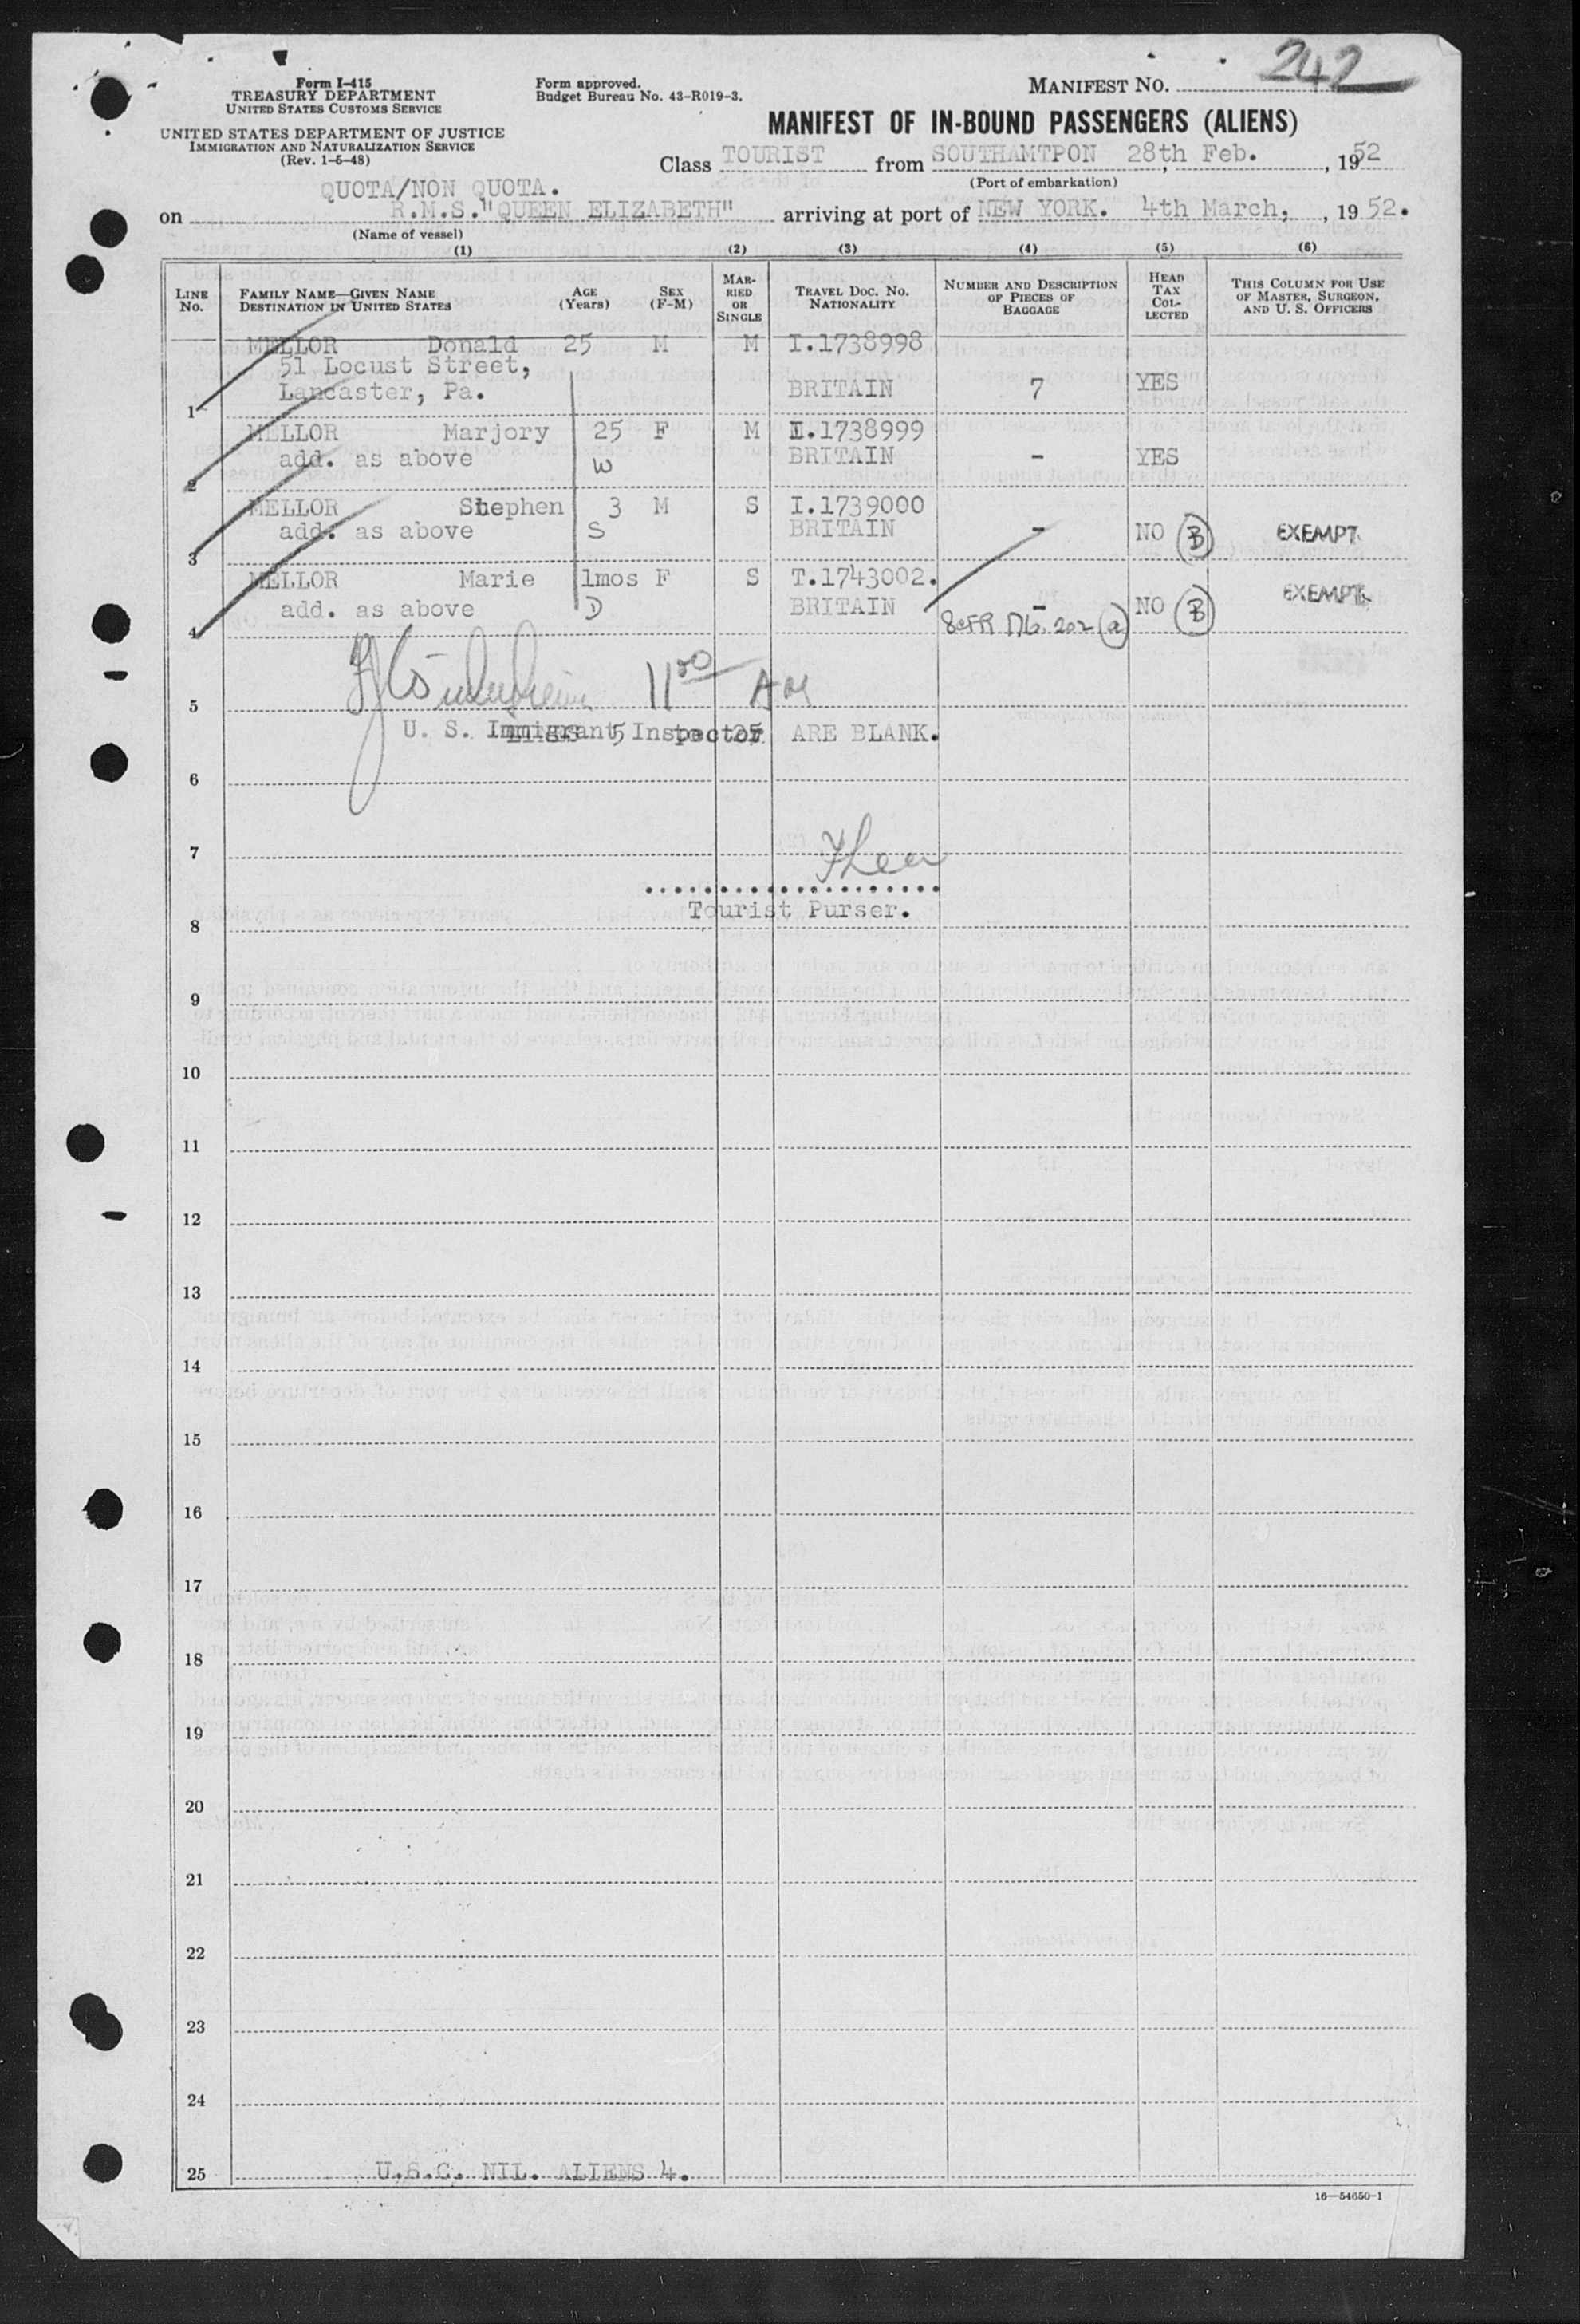 Form I-415
TREASURY DEPARTMENT
UNITED STATES CUSTOMS SERVICE
UNITED STATES DEPARTMENT OF JUSTICE
IMMIGRATION AND NATURALIZATION SERVICE
(Rev. 1-5-48)
Form approved.
Budget Bureau No. 43-R019-3.
MANIFEST NO. 242
MANIFEST OF IN-BOUND PASSENGERS (ALIENS)
Class TOURIST from SOUTHAMTPON 28th Feb. , 1952
(Port of embarkation)
QUOTA/NON QUOTA.
on R.M.S."QUEEN ELIZABETH" arriving at port of NEW YORK. 4th March, , 1952.
(Name of vessel)
(1) (2) (3) (4) (5) (6)
LINE NO. FAMILY NAME—GIVEN NAME DESTINATION IN UNITED STATES AGE (Years) SEX (F-M) MARRIED OR SINGLE TRAVEL DOC. NO. NATIONALITY NUMBER AND DESCRIPTION OF PIECES OF BAGGAGE HEAD TAX COLLECTED THIS COLUMN FOR USE OF MASTER, SURGEON, AND U. S. OFFICERS
MELLOR Donald 25 M M I.1738998
51 Locust Street,
1 Lancaster, Pa. BRITAIN 7 YES
MELLOR Marjory 25 F M I.1738999
2 add. as above W BRITAIN - YES
MELLOR Stephen 3 M S I.1739000
3 add. as above S BRITAIN - NO (B) EXEMPT
MELLOR Marie 1mos F S T.1743002.
4 add. as above D BRITAIN - NO (B) EXEMPT
8 CFR 176.202 (a)
11 00 AM
5
U. S. Immigrant Inspector
LINES 5 to 25 ARE BLANK.
6
7
Tourist Purser.
8
9
10
11
12
13
14
15
16
17
18
19
20
21
22
23
24
25 U.S.C. NIL. ALIENS 4.
16—54650-1